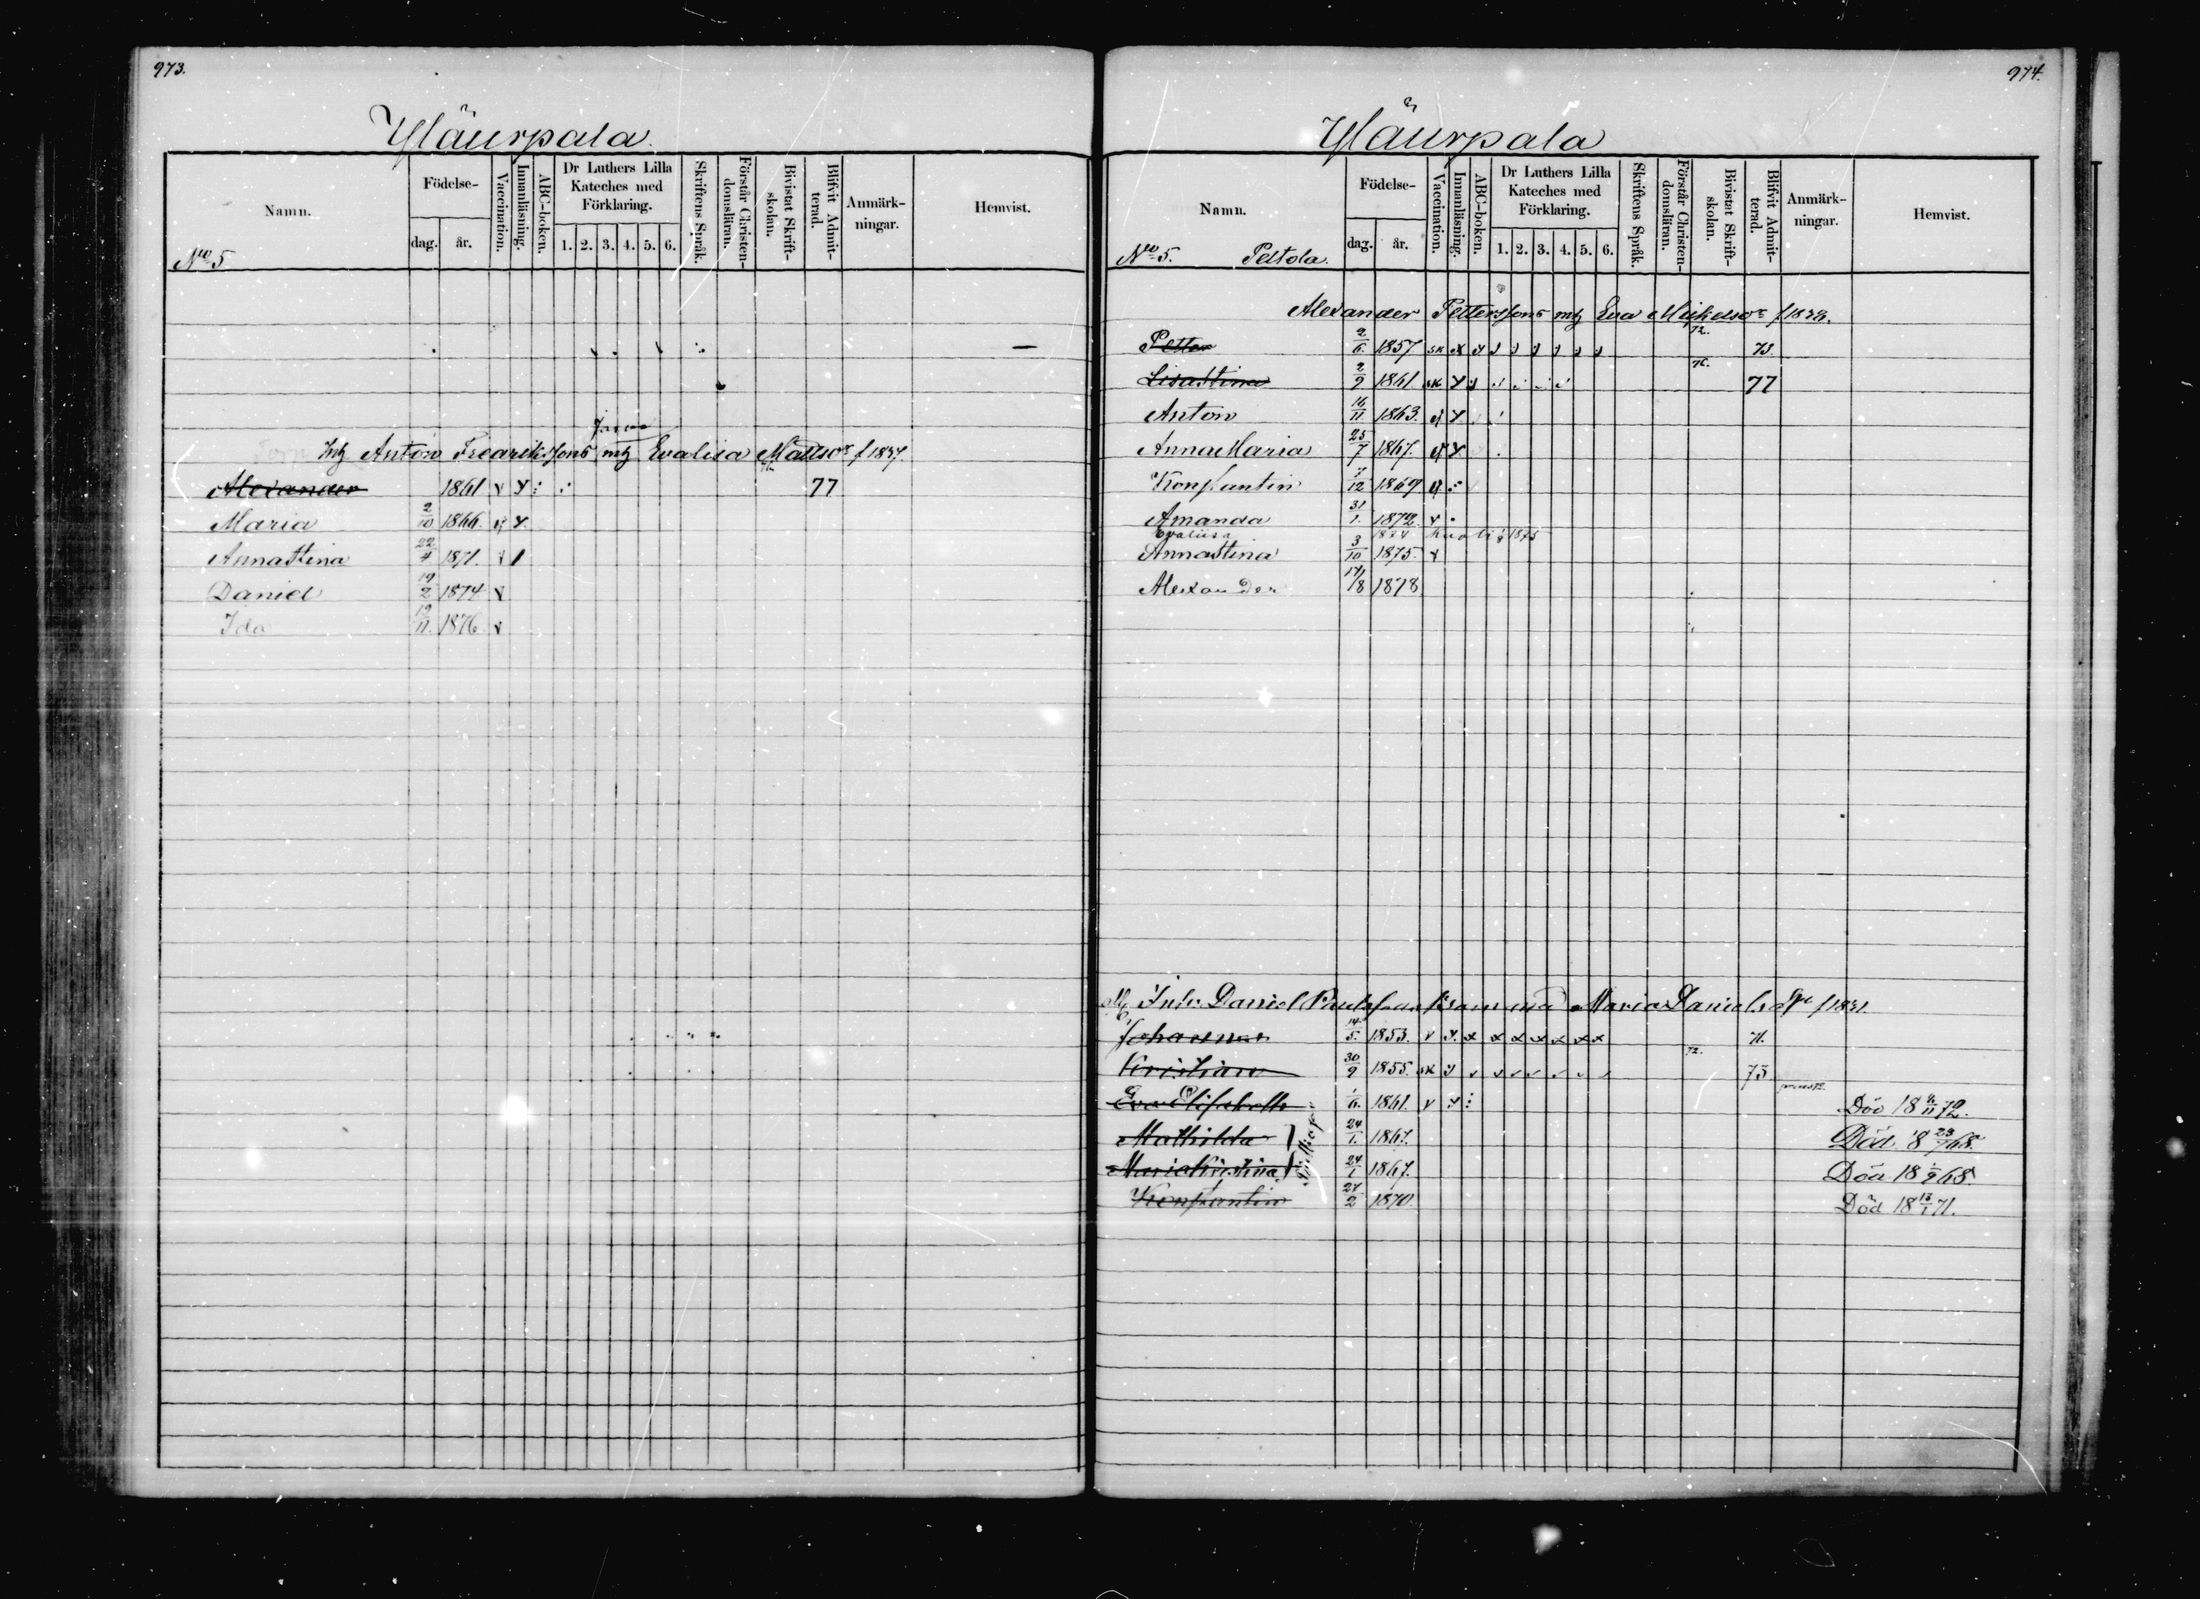 973.
Yläurpala.
Namn. Födelse- dag. år. Vaccination. Innanläsning. ABC-boken. Dr Luthers Lilla Kateches med Förklaring. 1. 2. 3. 4. 5. 6. Skriftens Språk. Förstår Christen-domsläran. Bivistat Skrift-skolan. Blifvit Admit-terad. Anmärk-ningar. Hemvist.
No 5
Anton Fredrikssons Evalisa Mattsdr f 1837.
Alexander 1861 v Y 77
Maria 2/10 1866. Y
AnnaStina 22/4 1871. v
Daniel 19/2 1874 v
Ida 19/11. 1876 v
974.
Yläurpala
Namn. Födelse- dag. år. Vaccination. Innanläsning. ABC-boken. Dr Luthers Lilla Kateches med Förklaring. 1. 2. 3. 4. 5. 6. Skriftens Språk. Förstår Christen-domsläran. Bivistat Skrift-skolan. Blifvit Admit-terad. Anmärk-ningar. Hemvist.
No 5. Peltola.
Alexander Pettersons Eva
Petter 2/6 1857 sk 72. 73.
LisaStina 2/9 1861 sk Y 76. 77
Anton 16/11 1863. Y
AnnaMaria 25/7 1867. Y
Konstantin 7/12 1869
Amanda 31/1. 1872 v
Evaliisa 1874 kuoli 1875
AnnaStina 3/10 1875 v
Alexander 17/8 1878
Daniel Maria f 1831.
Johannes 14/5. 1853. v Y x x x x x x x 71.
Kristian 30/9 1855. sk Y 72. 73
Eva Elisabeth 1/6. 1861. v Y Död 18 11 72.
Mathilda 24/1. 1867. Död 18 23/7 68.
MariaKristina 24/1 1867. Död 18 1/9 68.
Konstantin 27/2 1870. Död 18 13/1 71.